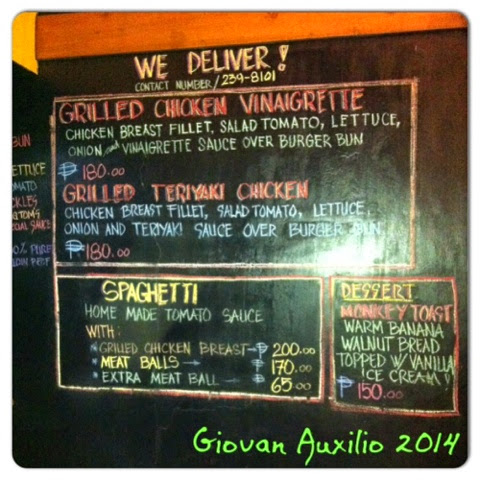 WE DELIVER!
CONTACT NUMBER/239-8101
GRILLED CHICKEN VINAIGRETTE
CHICKEN BREAST FILLET, SALAD TOMATO, LETTUCE,
ONION, and VINAIGRETTE SAUCE OVER BURGER BUN
₱ 180.00
GRILLED TERIYAKI CHICKEN
CHICKEN BREAST FILLET, SALAD TOMATO, LETTUCE,
ONION AND TERIYAKI SAUCE OVER BURGER BUN
₱180.00
BUN
SPAGHETTI
HOME MADE TOMATO SAUCE
WITH:
GRILLED CHICKEN BREAST→₱ 200.00
MEAT BALLS → ₱ 170.00
EXTRA MEAT BALL → ₱ 65.00
DESSERT
MONKEY TOAST
WARM BANANA
WALNUT BREAD
TOPPED W/ VANILLA
ICE CREAM!
₱ 150.00
Giovan Auxilio 2014